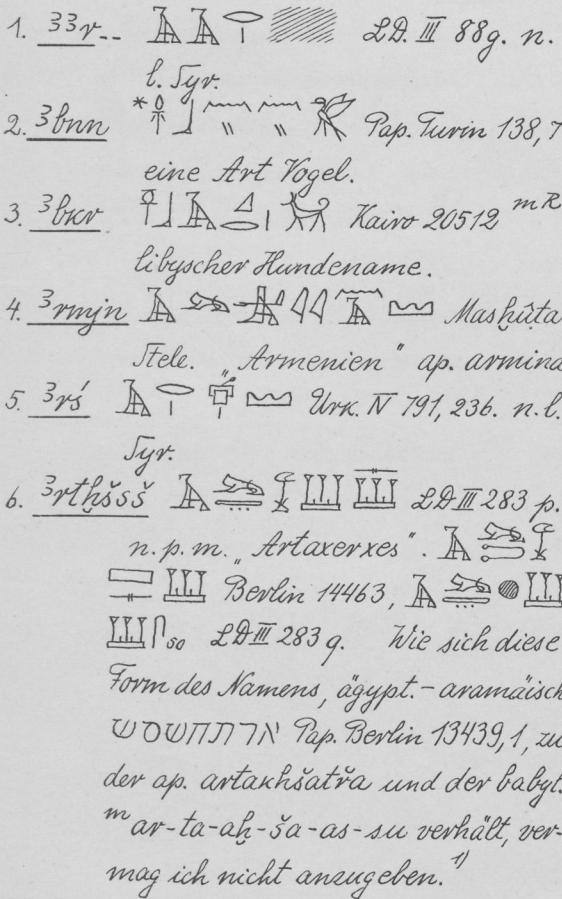 1. ꜣꜣr-- 𓄿𓄿𓂋𓏤 LD. III 88g. n.
l. Syr.
2. ꜣbnn Pap. Turin 138,7
eine Art Vogel.
3. ꜣbkr Kairo 20512 mR
libyscher Hundename.
4. ꜣrmjn Mashûta
Stele. „Armenien“ ap. armina
5. ꜣrś 𓄿𓂋𓏤 Urk. IV 791, 236. n. l.
Syr.
6. ꜣrtḫšsš LD III 283 p.
n. p. m. „Artaxerxes“.
Berlin 14463,
LD III 283 q. Wie sich diese
Form des Namens, ägypt.-aramäisch
ארתחשסש Pap. Berlin 13439,1, zu
der ap. artakhšatřa und der babyl.
m ar-ta-aḫ-ša-as-su verhält, ver-
mag ich nicht anzugeben. 1)